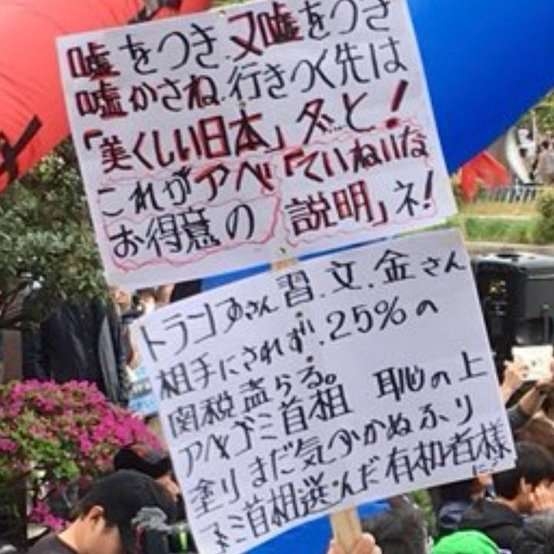 嘘をつき又嘘をつき
嘘かさね.行きつく先は
「美くしい日本」ダと!
これがアベ「ていねいな
お得意の 説明」ネ!
トランプさん習.文.金さん
相手にされず.25%の
関税盖らる。
アベゴミ首相 恥の上
塗りまだ気づかぬふり
ゴミ首相選んだ有权者様に